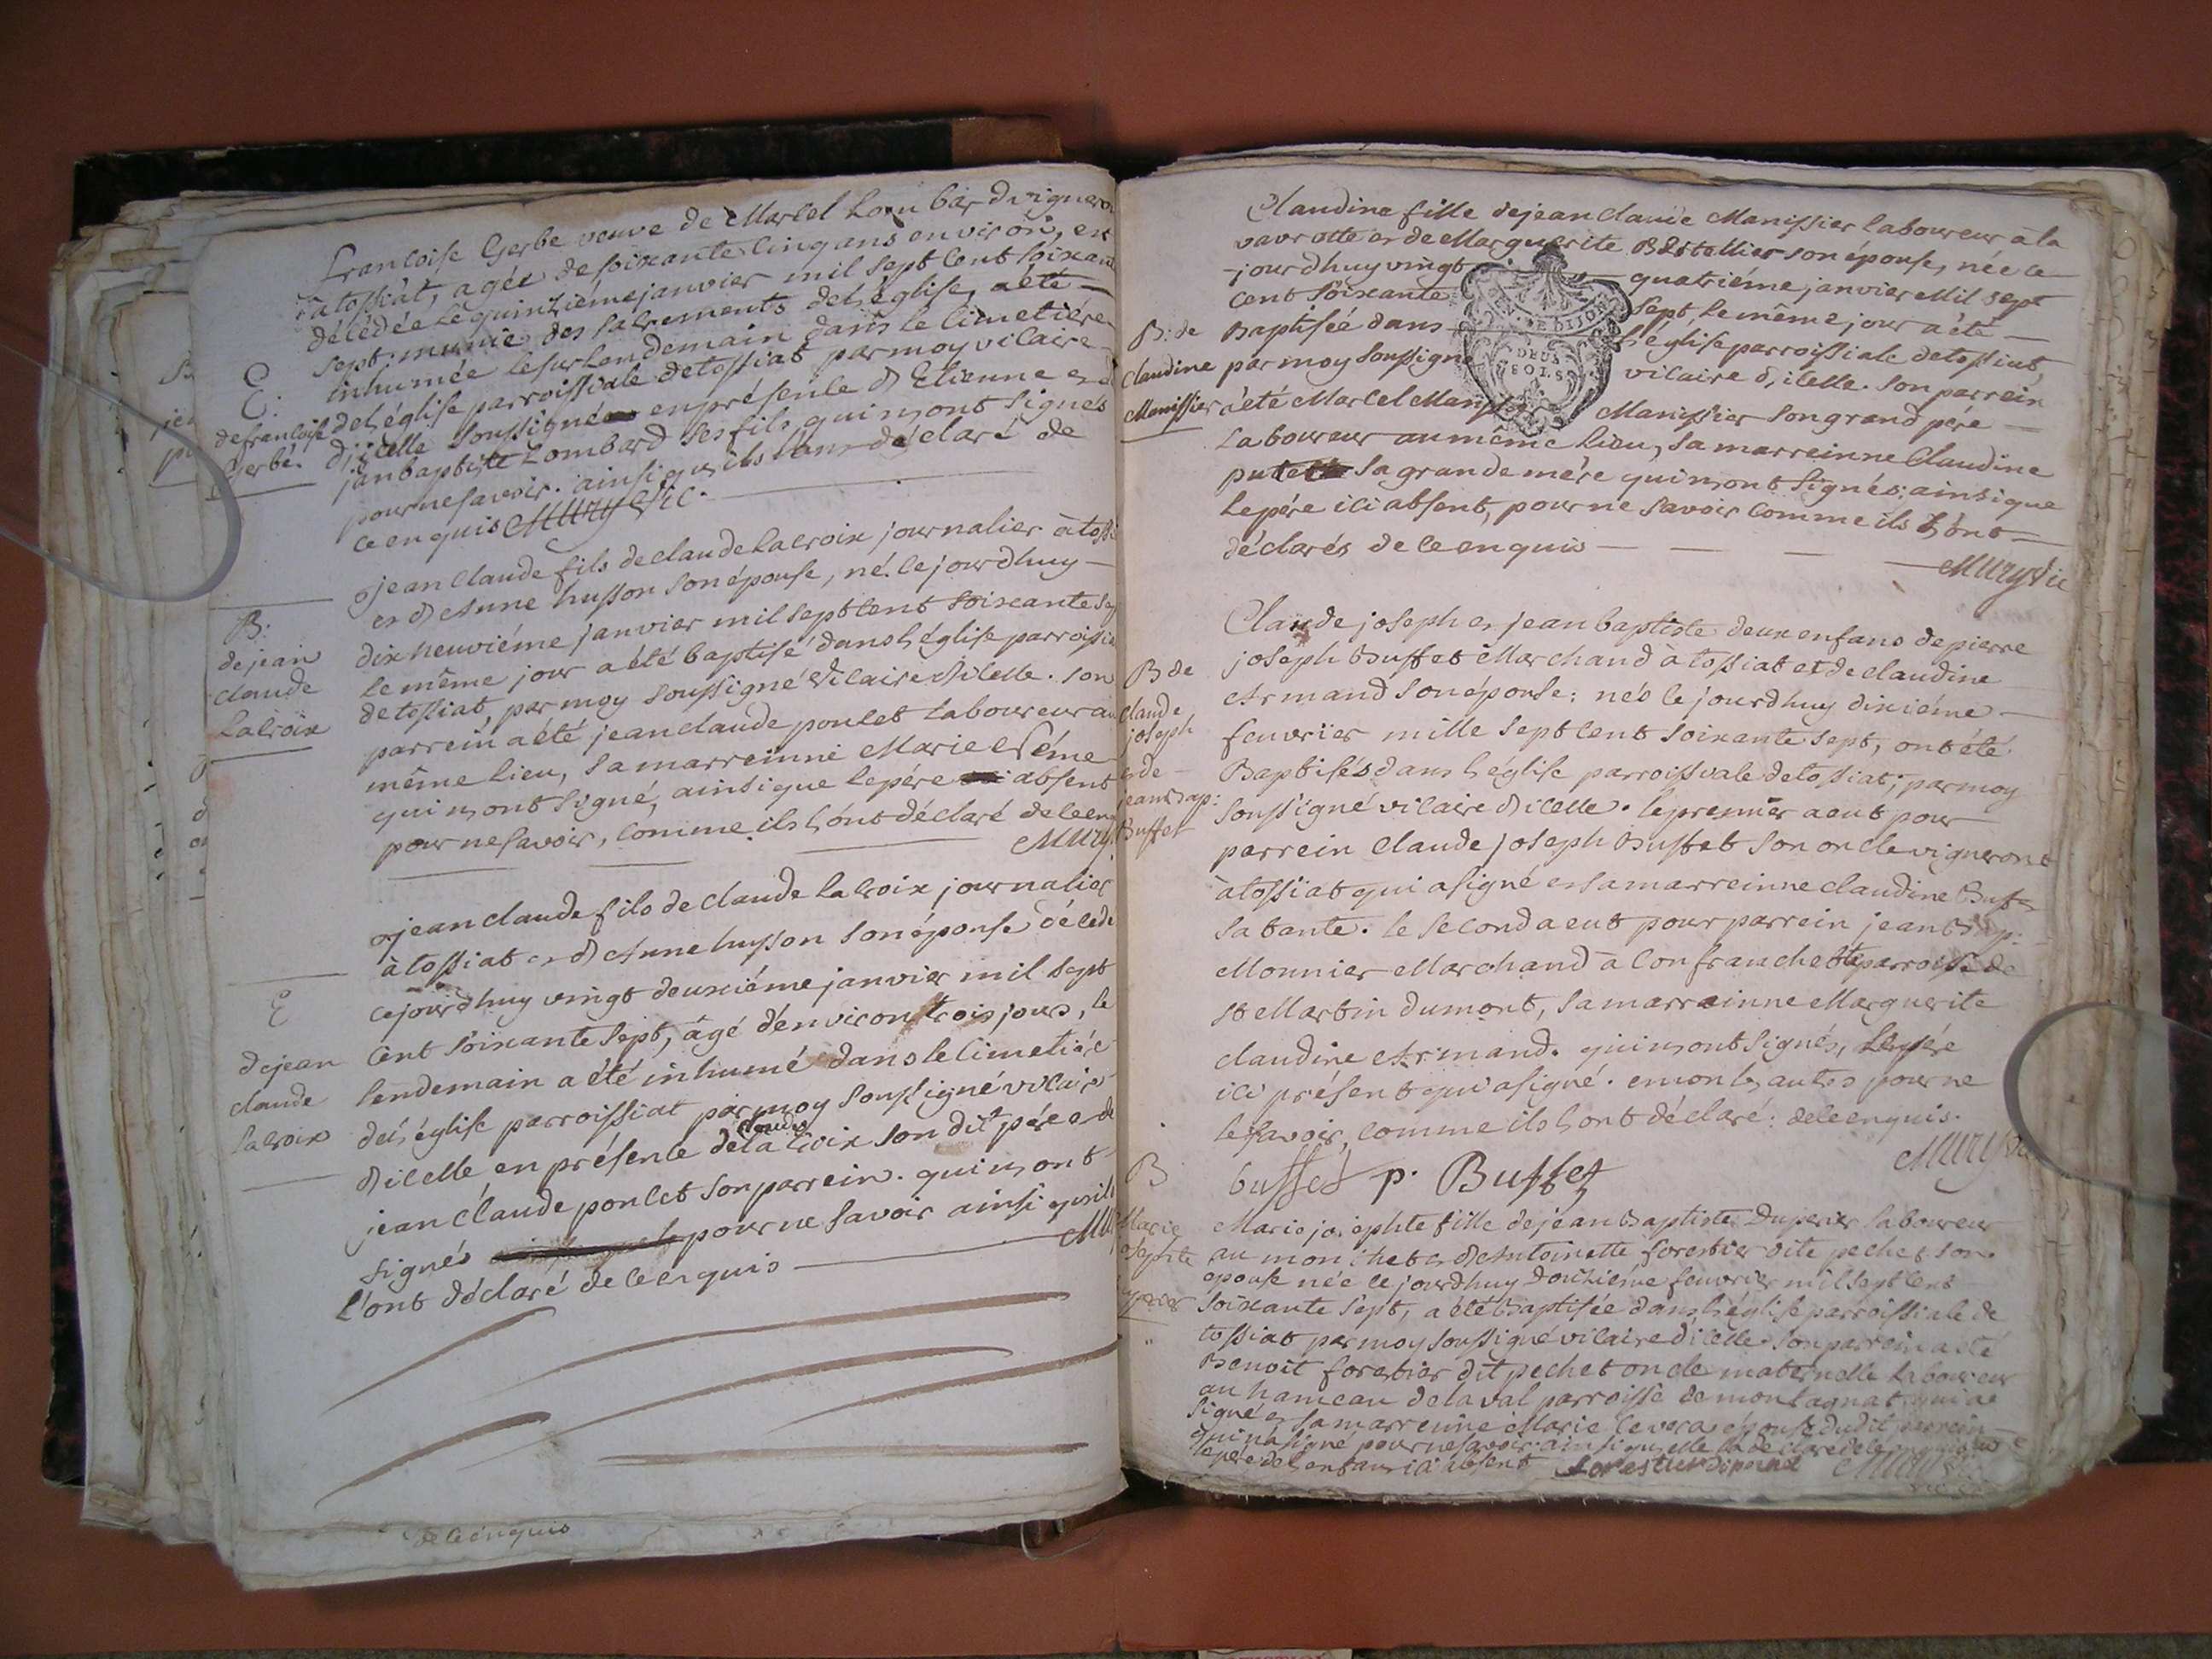 francoise Gerbe veuve de Marcel Lombard vigneron
à tossiat, agée de soixante cinq ans environ, est
décédée le quinziéme janvier mil sept cent soixante
sept. munie des sacrements de l'église, a été
inhumée le surlendemain dans le cimetiére
de l'église parroissiale de tossiat par moy vicaire
d'icelle soussigné en présence d'Etienne et
jan baptiste Lombard ses fils qui n'ont signés
pour ne savoir. ainsi qu'ils l'ont déclaré de
ce enquis Mury Vic.
E:
de francoise
Gerbe.
jean Claude fils de claude Lacroix journalier à tossi
et d'Anne husson son épouse, né. ce jourdhuy
dix neuviéme janvier mil sept cent soixante sep
le même jour a été baptisé dans l'église parroissia
de tossiat, par moy soussigné Vicaire d'icelle. son
parrein a été jean claude poncet laboureur au
même lieu, sa marreinne Marie
qui n'ont signé, ainsi que le pére absent
pour ne savoir, comme ils l'ont déclaré de ce enq
Mury
B:
de jean
claude
Lacroix
jean claude fils de claude la croix journalier
à tossiat et d'Anne husson son épouse décédé
ce jourdhuy vingt deuxiéme janvier mil sept
cent soixante sept, agé d'environ trois jours, le
lendemain a été inhumé dans le cimetiére
de l'église parroissiat par moy soussigné vicaire
claude
d'icelle, en présence de la Croix son dit pére et de
jean Claude poncet son parrein. qui n'ont
signés pour ne savoir ainsi qu'ils
l'ont déclaré de ce enquis
E
de jean
claude
lacroix
de ce enquis
Claudine fille de jean claude Manissier laboureur à la
vavrette et de Marguerite Bertellier son épouse, née ce
jourdhuy vingt quatriéme janvier Mil sept
cent soixante sept. le même jour a été
Baptisée dans l'église parroissiale de tossiat,
par moy soussigné vicaire d'icelle. son parrein
a été Marcel Manissier Manissier son grand pére
Laboureur au même lieu, sa marreinne Claudine
sa grande mére qui n'ont signés; ainsi que
le pére ici absent, pour ne savoir comme ils l'ont
déclarés de ce enquis
Mury Vic
DE DIJON
DEUX
SOLS
B: de
Claudine
Manissier
Claude joseph et jean baptiste deux enfans de pierre
joseph Buffet Marchand à tossiat et de claudine
Armand son épouse: nés le jourdhuy dixiéme
feuvrier mille sept cent soixante sept, ont été
Baptisés dans l'église parroissiale de tossiat; par moy
soussigné vicaire d'icelle. le premier a eut pour
parrein Claude joseph Buffet son oncle vigneront
à tossiat qui a signé et sa marreinne claudine Buffet
sa tante. le second a eut pour parrein jean Bap:
Monnier Marchand à Confranchette parroisse de
st Martin dumont, sa marreinne Marguerite
claudine Armand. qui n'ont signés, le pére
ici présent qui a signé. et non les autres pour ne
le savoir, comme ils l'ont déclaré: de ce enquis.
buffet p. Buffet
Mury
B de
claude
joseph
et de
jean Bap:
Buffet
Marie josephte fille de jean Baptiste Duperier laboureur
au monchet et d'Antoinette forestier dite pechet son
épouse née ce jourdhuy douziéme feuvrier mil sept cent
soixante sept, a été Baptisée dans l'église parroissiale de
tossiat par moy soussigné vicaire d'icelle. son parrein a été
Benoit forestier dit pechet oncle maternelle laboureur
au hameau de la val parroisse de montagnat qui a
signé et sa marreinne Marie épouse dudit parrein
qui n'a signé pour ne savoir. ainsi qu'elle l'a declaré de ce enquis
le pére de l'enfant ici absent
B
Marie
josephte